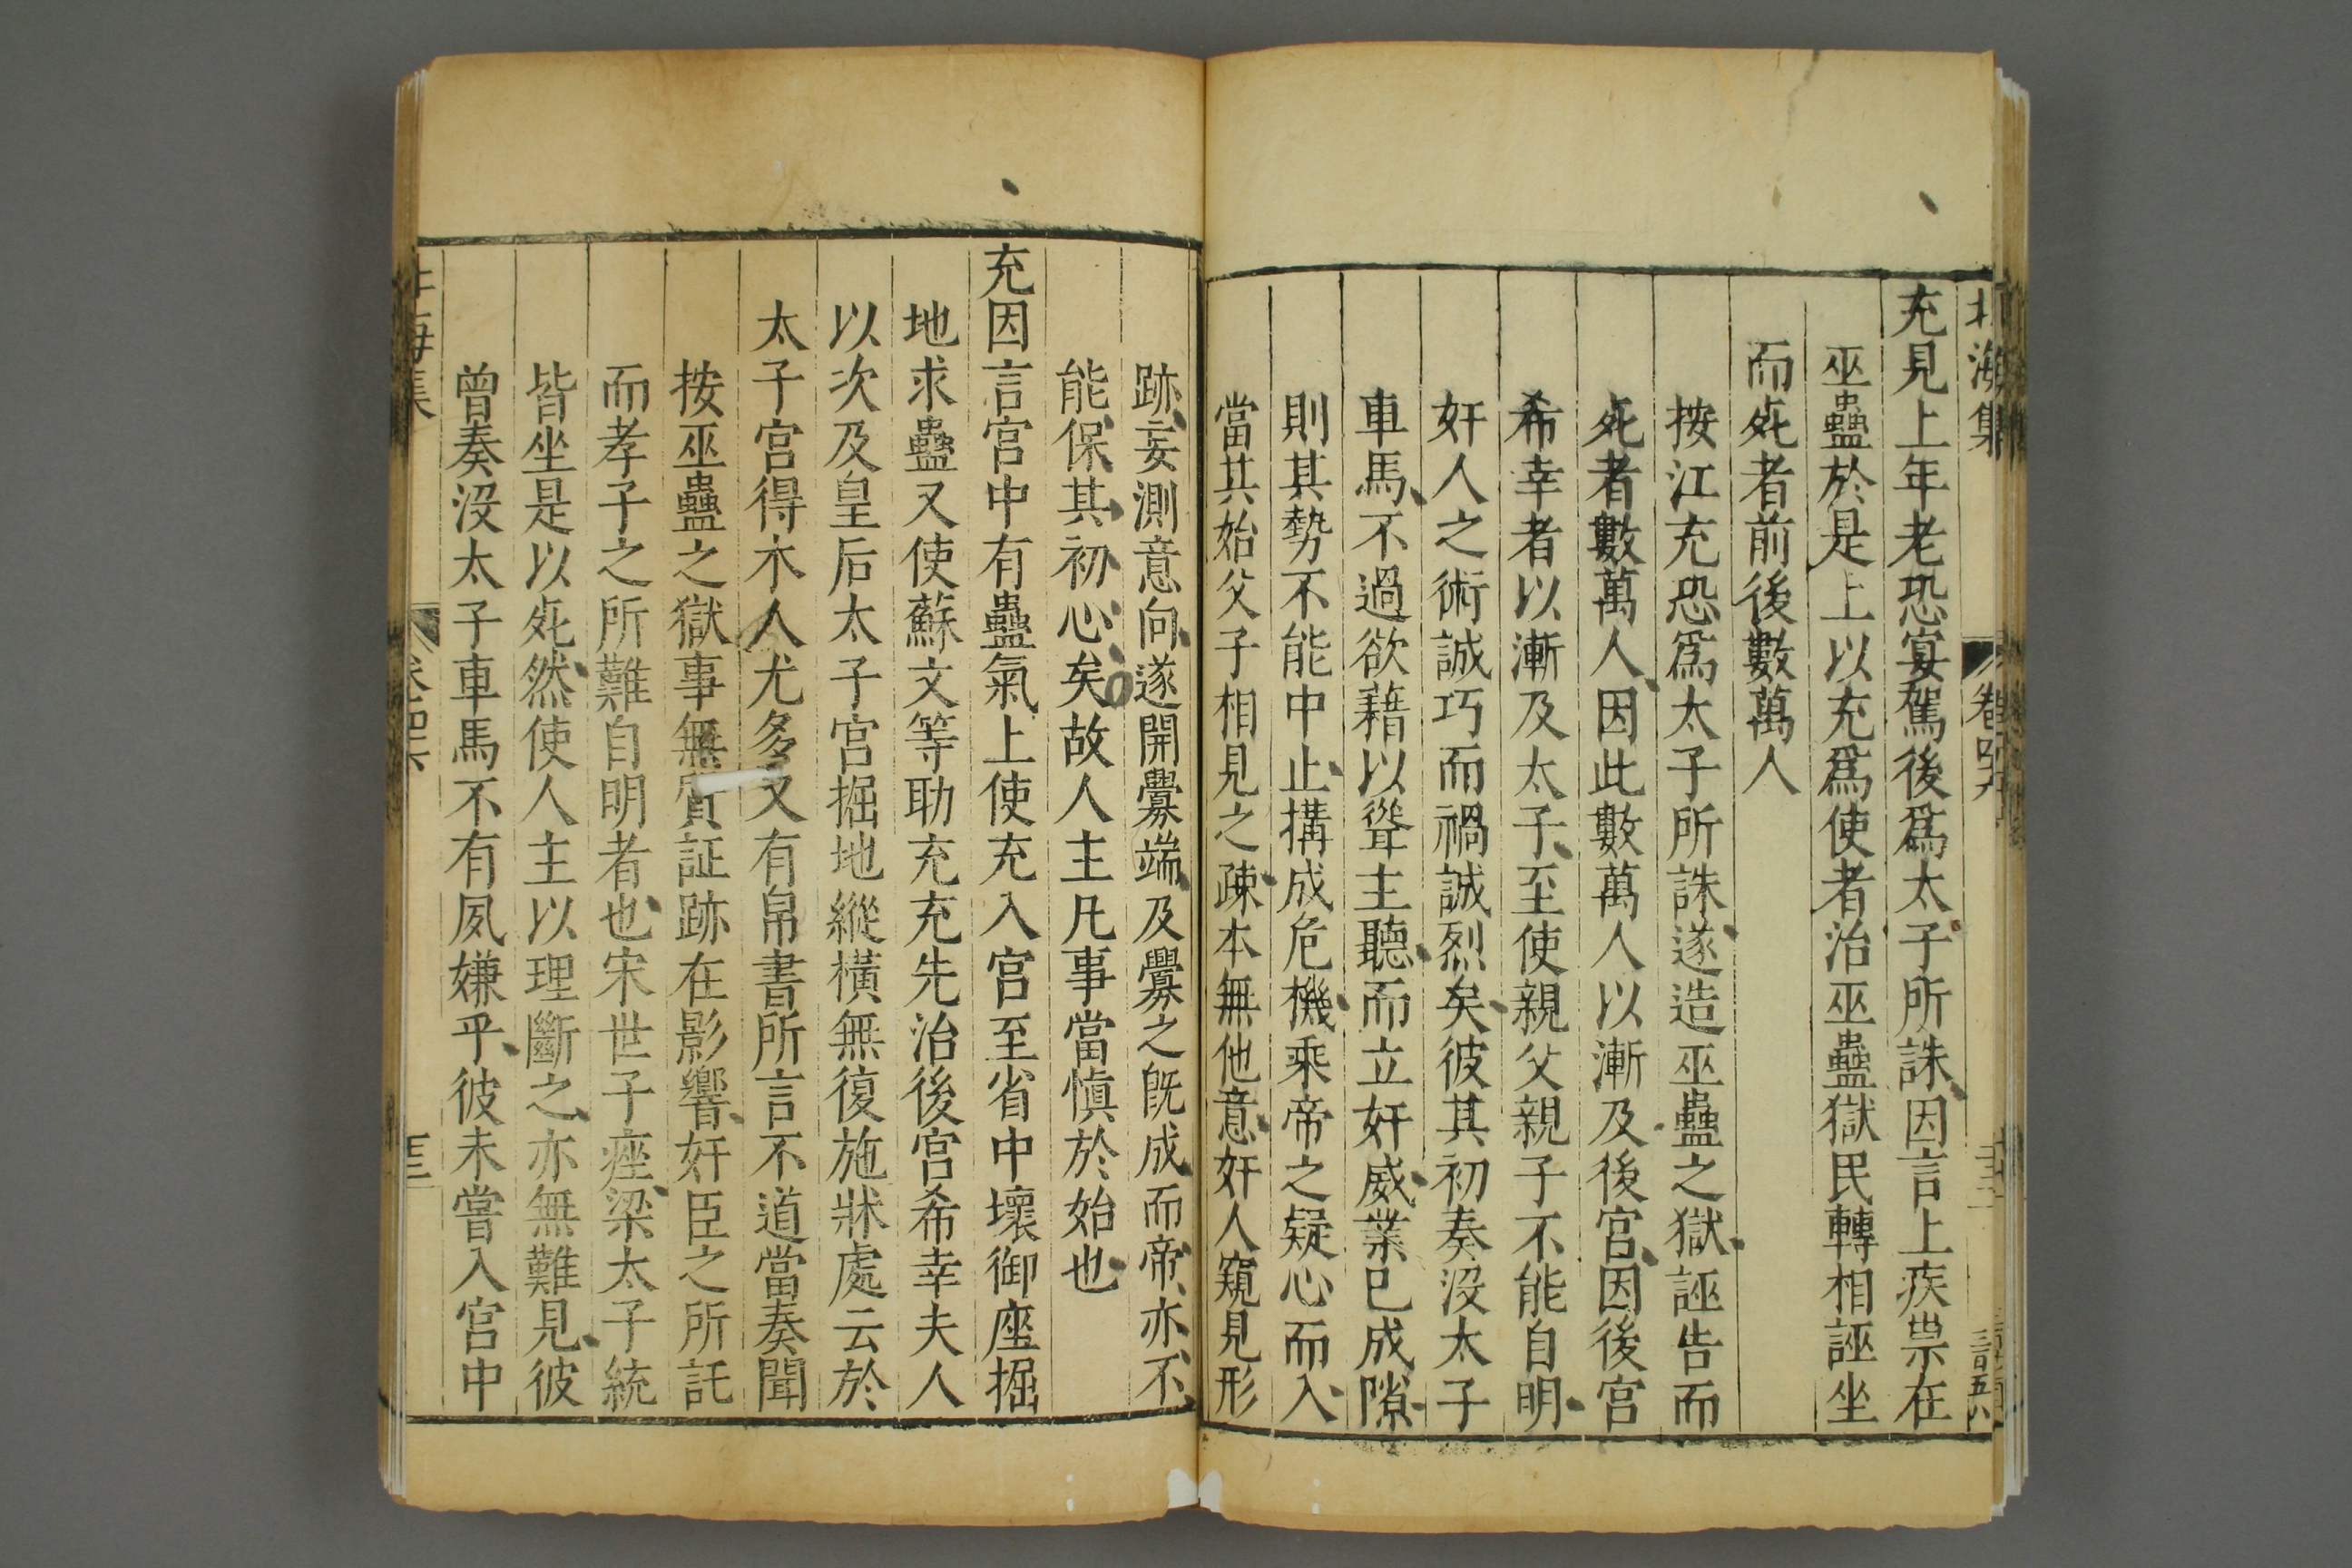 北海集 卷四六
充見上年老恐宴駕後爲太子所誅因言上疾祟在
巫蠱於是上以充爲使者治巫蠱獄民轉相誣坐
而死者前後數萬人
按江充恐爲太子所誅遂造巫蠱之獄誣告而
死者數萬人因此數萬人以漸及後宮因後宮
希幸者以漸及太子至使親父親子不能自明
奸人之術誠巧而禍誠烈矣彼其初奏沒太子
車馬不過欲藉以聳主聽而立奸威業已成隙
則其勢不能中止搆成危機乘帝之疑心而入
當其始父子相見之疎本無他意奸人窺見形
跡妄測意向遂開釁端及釁之旣成而帝亦不
能保其初心矣故人主凡事當慎於始也
充因言宮中有蠱氣上使充入宮至省中壞御座掘
地求蠱又使蘇文等助充充先治後宮希幸夫人
以次及皇后太子宮掘地縱橫無復施牀處云於
太子宮得木人尤多又有帛書所言不道當奏聞
按巫蠱之獄事無質証跡在影響奸臣之所託
而孝子之所難自明者也宋世子痤梁太子統
皆坐是以死然使人主以理斷之亦無難見彼
曾奏沒太子車馬不有夙嫌乎彼未嘗入宮中